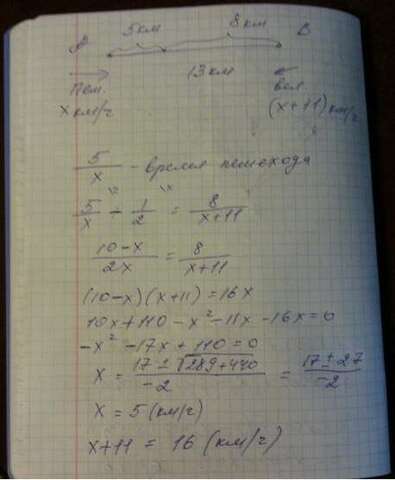 5км 8км
A B
13км
пеш. вел.
x км/ч (x+11) км/ч
5/x - время пешехода
5/x - 1/2 = 8/(x+11)
(10-x)/2x = 8/(x+11)
(10-x)(x+11) = 16x
10x+110-x²-11x-16x=0
-x²-17x+110=0
x = (17±√289+440)/-2 = (17±27)/-2
x = 5 (км/ч)
x+11 = 16 (км/ч)